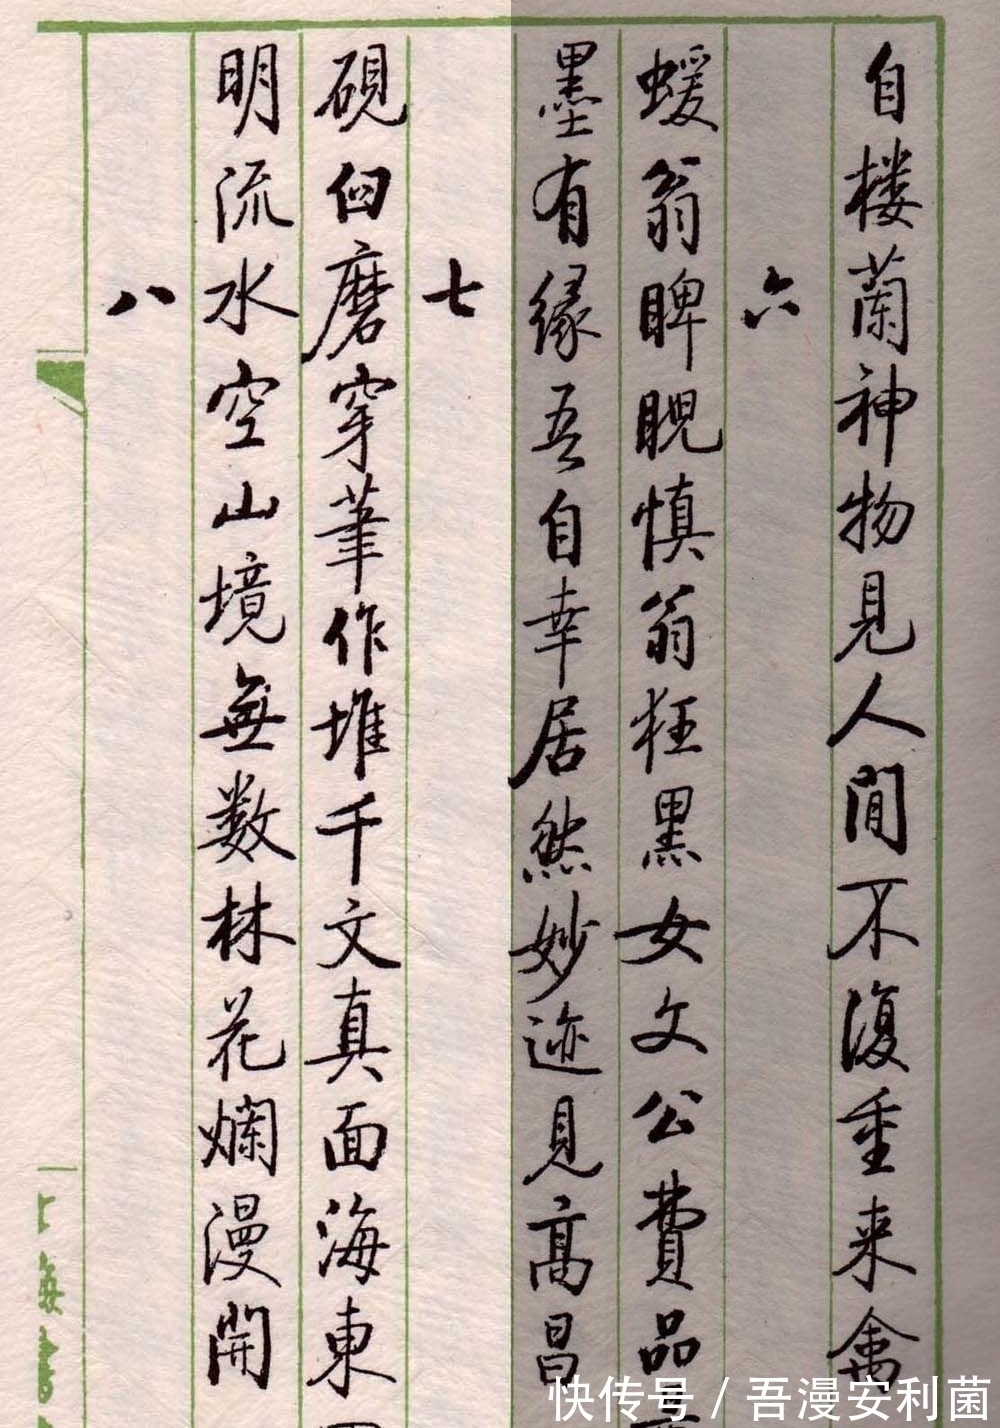 自楼蘭神物見人間不復重来禽
六
蝯翁睥睨慎翁狂黑女文公費品
墨有緣吾自幸居然妙迹見高昌
七
硯臼磨穿筆作堆千文真面海東
明流水空山境無数林花爛漫開
八
海書
快传号/吾漫安利菌